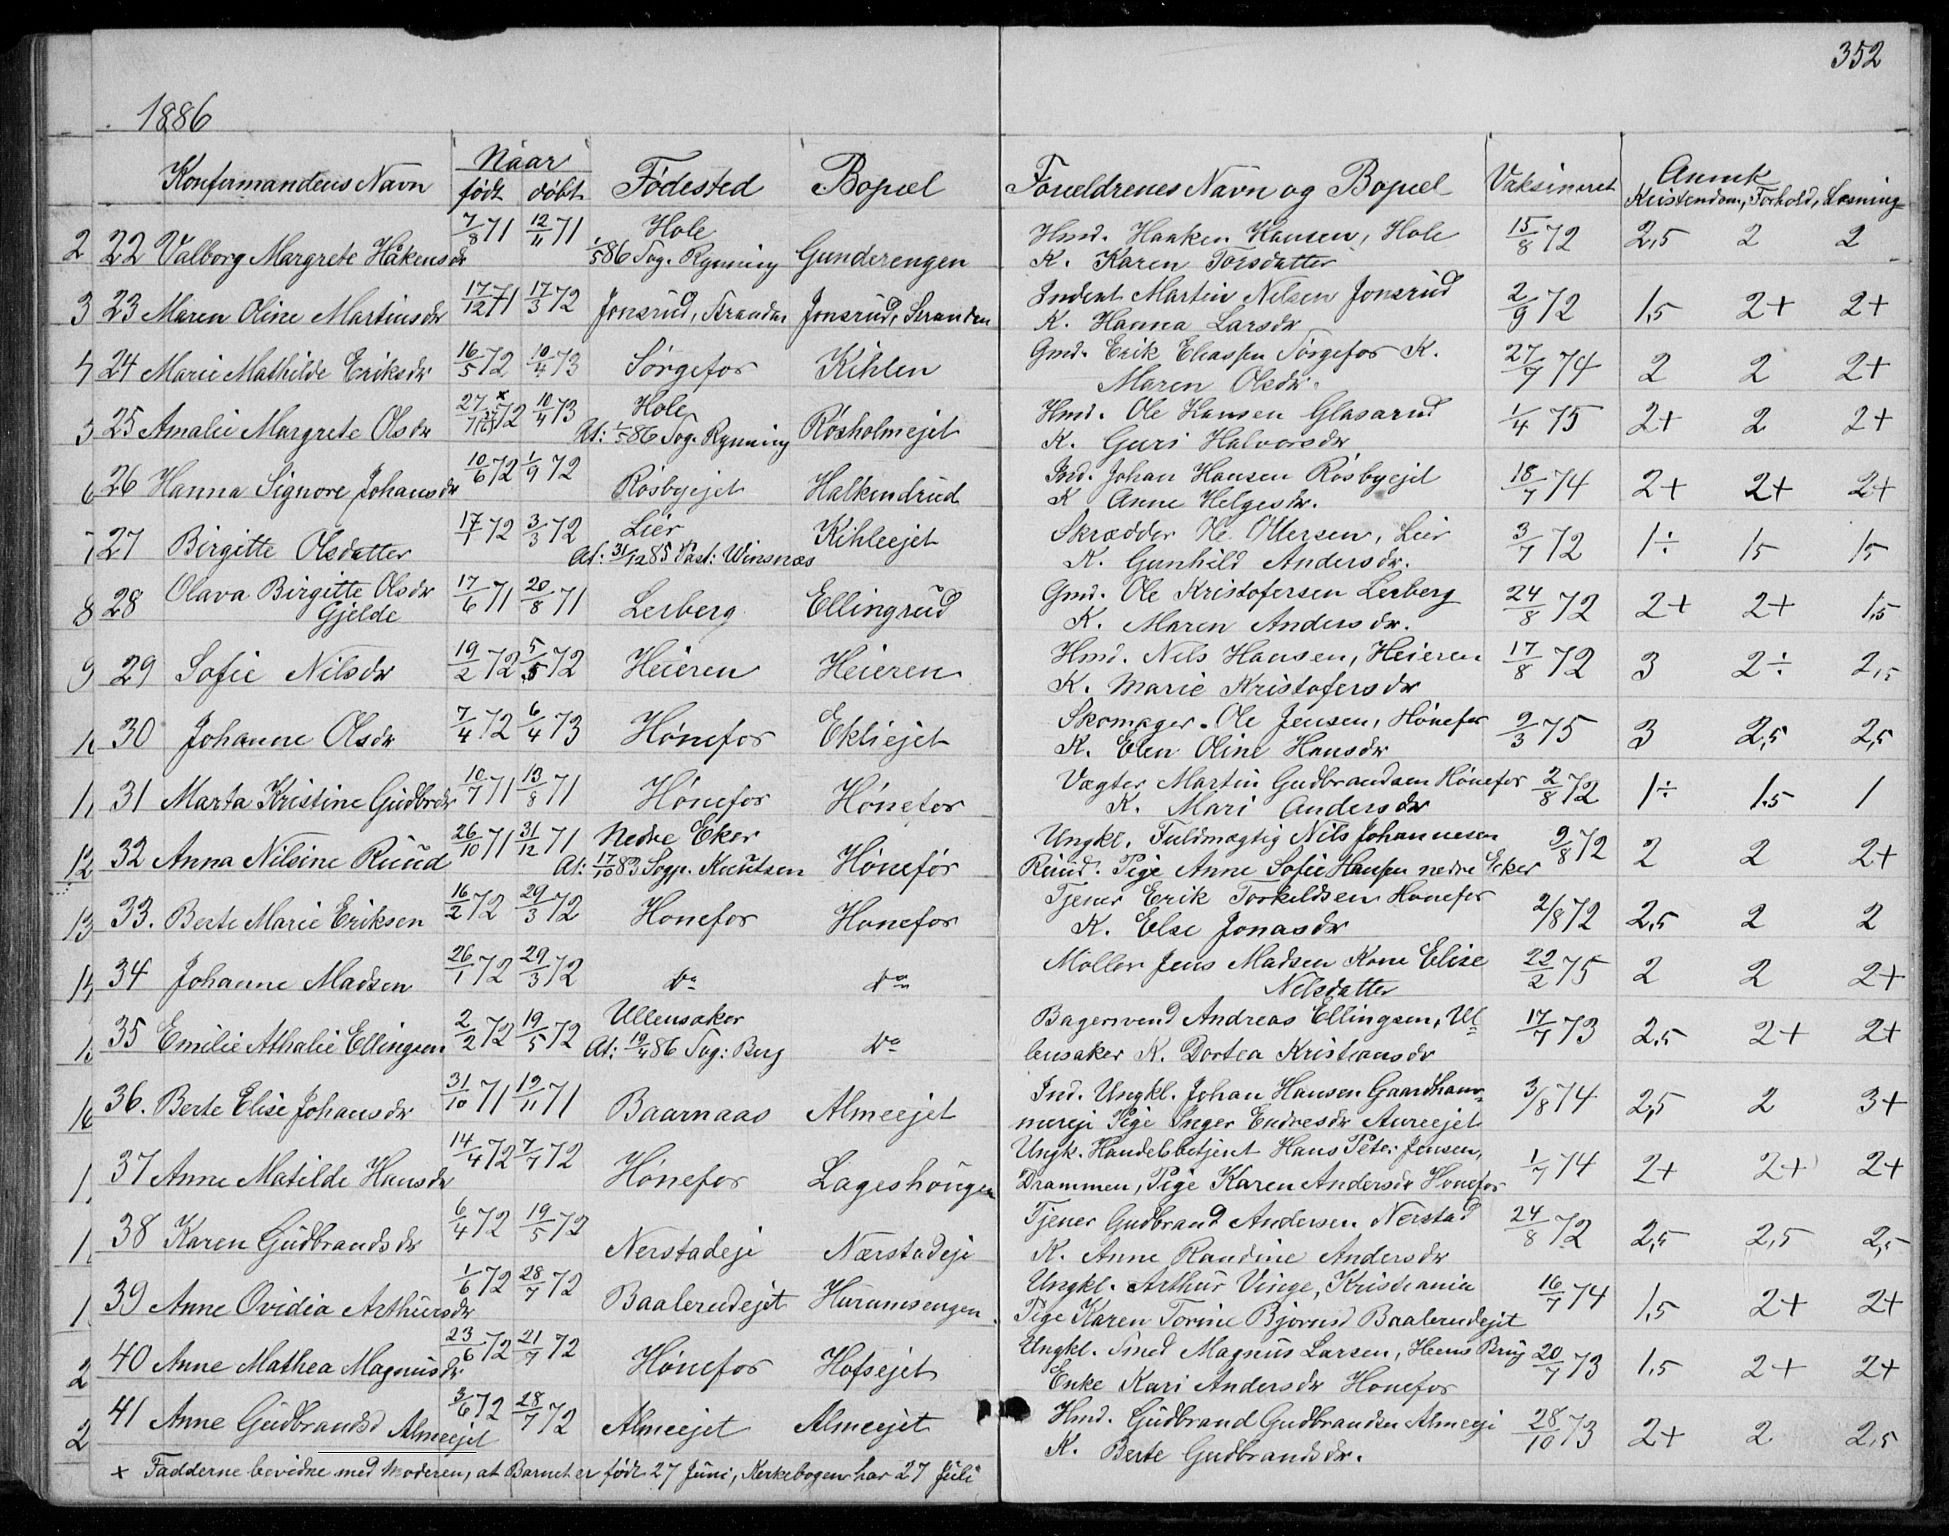 352
1886
Konfirmandens Navn Naar født døbt Fødested Bopæl Forældrenes Navn og Bopæl Vaksineret Anmrk Kristendom, Forhold, Læsning
2 22 Valborg Margrete Håkensdr 7/8 71 12/11 71 Hole 1/5 86 Sog. Rynning Gunderengen Hmd. Haaken Hansen, Hole 15/8 72 2,5 2 2
K. Karen Torsdatter
3 23 Maren Oline Martinsdr 17/12 71 17/3 72 Jonsrud, Stranden Jonsrud, Stranden Inderst Martin Nilsen Jonsrud 2/9 72 1,5 2+ 2+
K. Hanna Larsdr
24 Marie Mathilde Eriksdr 16/5 72 10/4 73 Sørgefos Kihlen Gmd. Erik Eliassen Sørgefos K. 27/7 74 2 2 2+
Maren Olsdr.
25 Amalie Margrete Olsdr 27/7 x 72 10/4 73 Hole At: 1/5 86 Sog. Rynning Røsholmejet Hmd. Ole Hansen Glasarud 1/4 75 2+ 2 2+
K. Guri Halvorsdr
6 26 Hanna Signore Johansdr 10/6 72 1/9 72 Røsbyejet Halkendrud Ind. Johan Hansen Røsbyejet 18/7 74 2+ 2+ 2+
K Anne Helgesdr.
7 27 Birgitte Olsdatter 17/1 72 3/3 72 Lier At: 31/12 85 Past: Winsnæs Kihleejet Skrædder Ole Ottersen, Lier 3/7 72 1÷ 1,5 1,5
K. Gunhild Andersdr.
8 28 Olava Birgitte Olsdr Gjelde 17/6 71 20/8 71 Lerberg Ellingsrud Gmd. Ole Kristofersen Lerberg 24/8 72 2+ 2+ 1,5
K. Maren Andersdr.
9 29 Sofie Nilsdr 19/2 72 5/5 72 Heieren Heieren Hmd. Nils Hansen, Heieren 17/8 72 3 2÷ 2,5
K. Marie Kristofersdr
30 Johanne Olsdr 7/4 72 6/4 73 Hønefos Ekliejet Skomager. Ole Jensen, Hønefos 2/3 75 3 2,5 2,5
K. Elen Oline Hansdr
31 Marta Kristine Gudbrdr 10/7 71 13/8 71 Hønefos Hønefos Vægter Martin Gudbrandsen Hønefos 2/8 72 1÷ 1.5 1
K. Mari Andersdr
12 32 Anna Nilsine Ruud 26/10 71 31/12 71 Nedre Eker At: 17/10 83 Sogp. Knutsen Hønefos Ungkl. Fuldmægtig Nils Johannesen 9/8 72 2 2 2+
Ruud. Pige Anne Sofie Hansen nedre Eeker
13 33. Berte Marie Eriksen 16/2 72 29/3 72 Honefos Honefos Tjener Erik Torkeldsen Honefos 2/8 72 2,5 2 2
K. Else Jonasdr
34 Johanne Madsen 26/1 72 29/3 72 do do Møller Jens Madsen Kone Elise 22/2 75 2 2 2+
Nilsdatter
35 Emilie Athalie Ellingsen 2/2 72 19/5 72 Ullensaker At: 19/4 86 Sog: Berg do Bagersvend Andreas Ellingsen, Ul= 17/7 73 2.5 2+ 2+
lensaker K. Dortea Kristiansdr
16 36. Berte Elise Johansdr 31/10 71 19/11 71 Baarnaas Almeejet Ind. Ungkl. Johan Hansen Gaardham= 3/8 74 2,5 2 3+
mereje Pige Inger Endresdr Aureejet
37 Anne Matilde Hansdr 14/4 72 7/7 72 Hønefos Lageshougen Ungk. Handelsbetjent Hans Peter Jensen, 1/7 74 2+ 2+ 2+
Drammen, Pige Karen Andersdr Honefos
38 Karen Gudbrandsdr 6/4 72 19/5 72 Nerstadeje Nærstadeje Tjener Gudbrand Andersen Nerstad 24/8 72 2,5 2,5 2,5
K. Anne Randine Andersdr
39 Anne Ovidia Arthursdr 1/6 72 28/7 72 Baalerudejet Haramsengen Ungkl. Arthur Vinge, Kristiania 16/7 74 1,5 2+ 2+
Pige Karen Torine Bjørnsd Baalerudejet
40 Anne Mathea Magnusdr 23/6 72 21/7 72 Hønefos Hofsejet Ungkl. Smed Magnus Larsen, Heens Brug 20/7 73 1,5 2+ 2+
Enke Kari Andersdr Honefos
41 Anne Gudbrandsd Almeejet 3/6 72 28/7 72 Almeejet Almeejet Hmd. Gudbrand Gudbrandsen Almeeje 28/10 73 2+ 2 2,5
K. Berte Gudbrandsdr.
x Fadderne bevidne med Moderen, at Barnet er født 27 Juni, Kerkebogen har 27 Juli